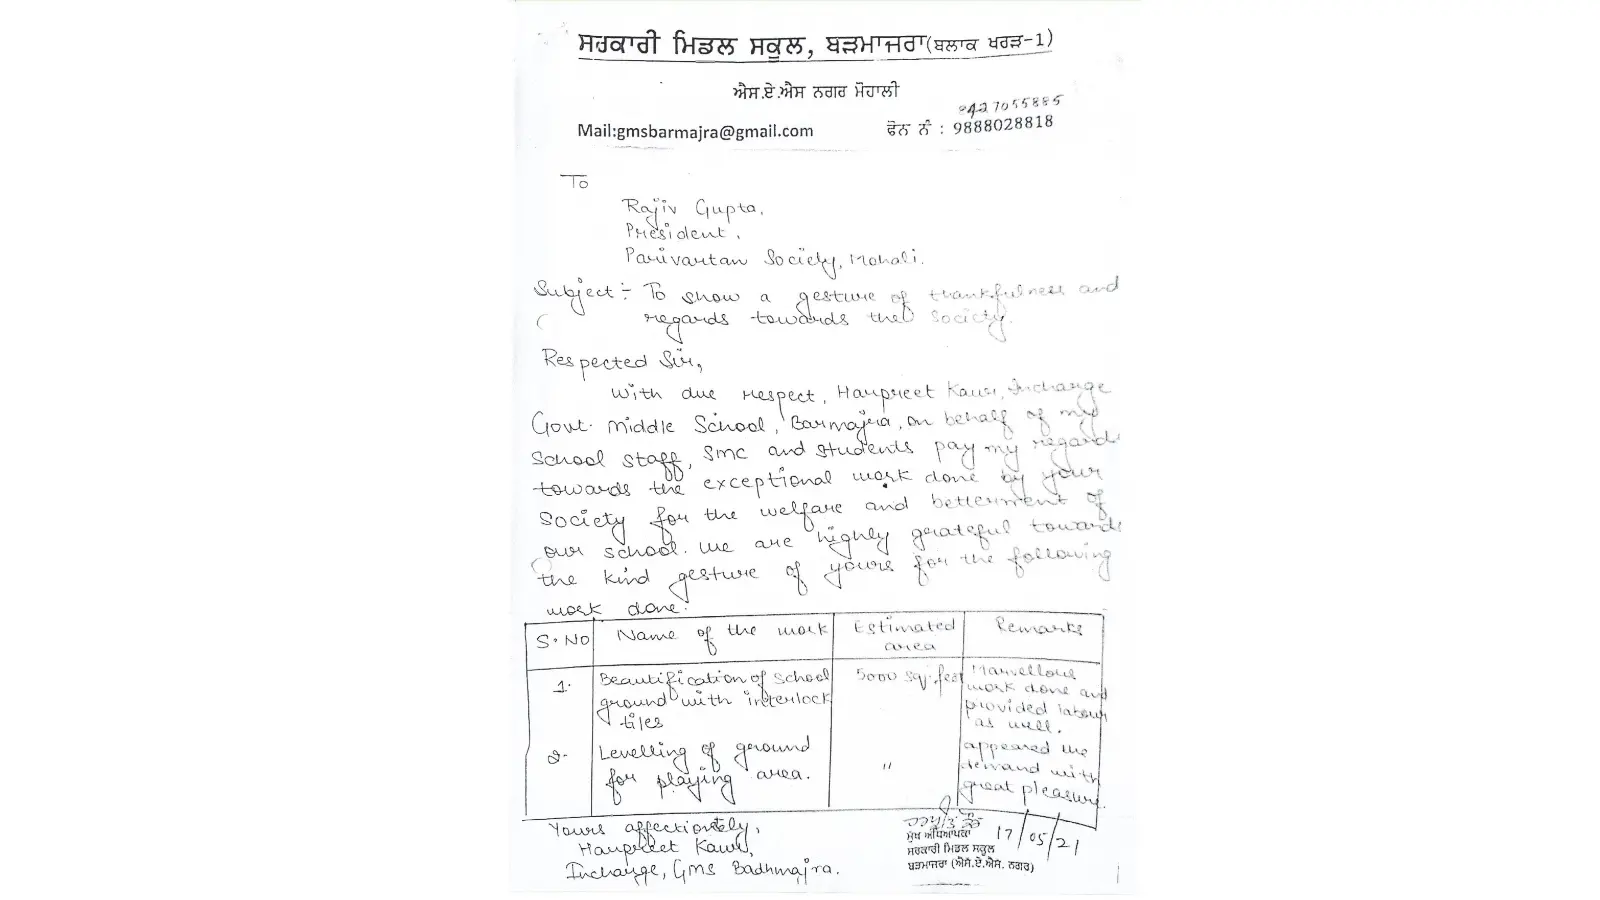 ਸਰਕਾਰੀ ਮਿਡਲ ਸਕੂਲ, ਬੜਮਾਜਰਾ(ਬਲਾਕ ਖਰੜ-1)
ਐਸ.ਏ.ਐਸ ਨਗਰ ਮੋਹਾਲੀ
9427055885
Mail:gmsbarmajra@gmail.com ਫੋਨ ਨੰ : 9888028818
To
Rajiv Gupta,
President,
Parivartan Society, Mohali.
Subject:- To show a gesture of thankfulness and
regards towards the society.
Respected Sir,
With due respect, Harpreet Kaur, Incharge
Govt. Middle School, Barmajra, on behalf of my
school staff, SMC and students pay my regards
towards the exceptional work done by your
society for the welfare and betterment of
our school. We are highly grateful towards
the kind gesture of yours for the following
work done:
S.NO Name of the work Estimated area Remarks
1. Beautification of school 5000 sq. feet Marvellous
ground with interlock work done and
tiles provided labour
as well.
2. Levelling of ground " appeared the
for playing area. demand with
great pleasure.
Yours affectionately,
Harpreet Kaur,
Incharge, GMS Badhmajra.
ਮੁੱਖ ਅਧਿਆਪਕਾ 17/05/21
ਸਰਕਾਰੀ ਮਿਡਲ ਸਕੂਲ
ਬੜਮਾਜਰਾ (ਐਸ.ਏ.ਐਸ. ਨਗਰ)